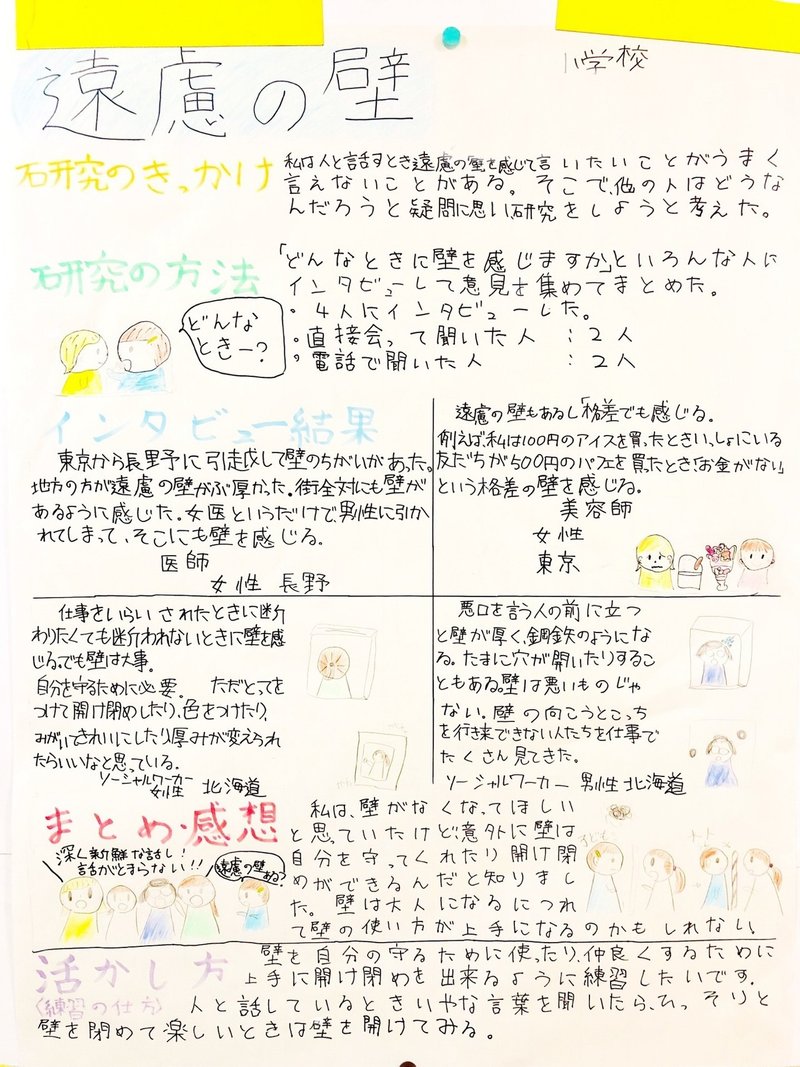 遠慮の壁
小学校
研究のきっかけ
私は人と話すとき遠慮の壁を感じて言いたいことがうまく
言えないことがある。そこで、他の人はどうな
んだろうと疑問に思い研究をしようと考えた。
研究の方法
「どんなときに壁を感じますか」といろんな人に
インタビューして意見を集めてまとめた。
・4人にインタビューした。
・直接会って聞いた人 :2人
・電話で聞いた人 :2人
どんな
ときー?
インタビュー結果
東京から長野に引越しして壁のちがいがあった。
地方の方が遠慮の壁がぶ厚かった。街全対にも壁が
あるように感じた。女医というだけで、男性に引か
れてしまって、そこにも壁を感じる。
医師
女性 長野
遠慮の壁もあるし「格差でも感じる。
例えば、私は100円のアイスを買ったときいっしょにいる
友だちが500円のパフェを買ったとき「お金がない」
という格差の壁を感じる。
美容師
女性
東京
仕事をいらいされたときに断
わりたくても断われないときに壁を感
じる。でも壁は大事。
自分を守るために必要。 ただとってを
つけて開け閉めしたり、色をつけたり、
みがいてきれいにしたり厚みが変えられ
たらいいなと思っている。
ソーシャルワーカー
女性 北海道
悪口を言う人の前に立つ
と壁が厚く、鋼鉄のようにな
る。たまに穴が開いたりするこ
ともある。壁は悪いものじゃ
ない。壁の向こうとこっち
を行き来できない人たちを仕事で
たくさん見てきた。
ソーシャルワーカー 男性 北海道
まとめ・感想
深く新鮮な話し!
話がとまらない!!
遠慮の壁ある?
私は、壁がなくなってほしい
と思っていたけど、意外に壁は
自分を守ってくれたり開け閉
めができるんだと知りまし
た。壁は大人になるにつれ
て壁の使い方が上手になるのかもしれない。
活かし方
(練習の仕方)
壁を自分の守るために使ったり、仲良くするために
上手に開け閉めを出来るように練習したいです。
人と話しているときいやな言葉を聞いたら、ひっそりと
壁を閉めて楽しいときは壁を開けてみる。